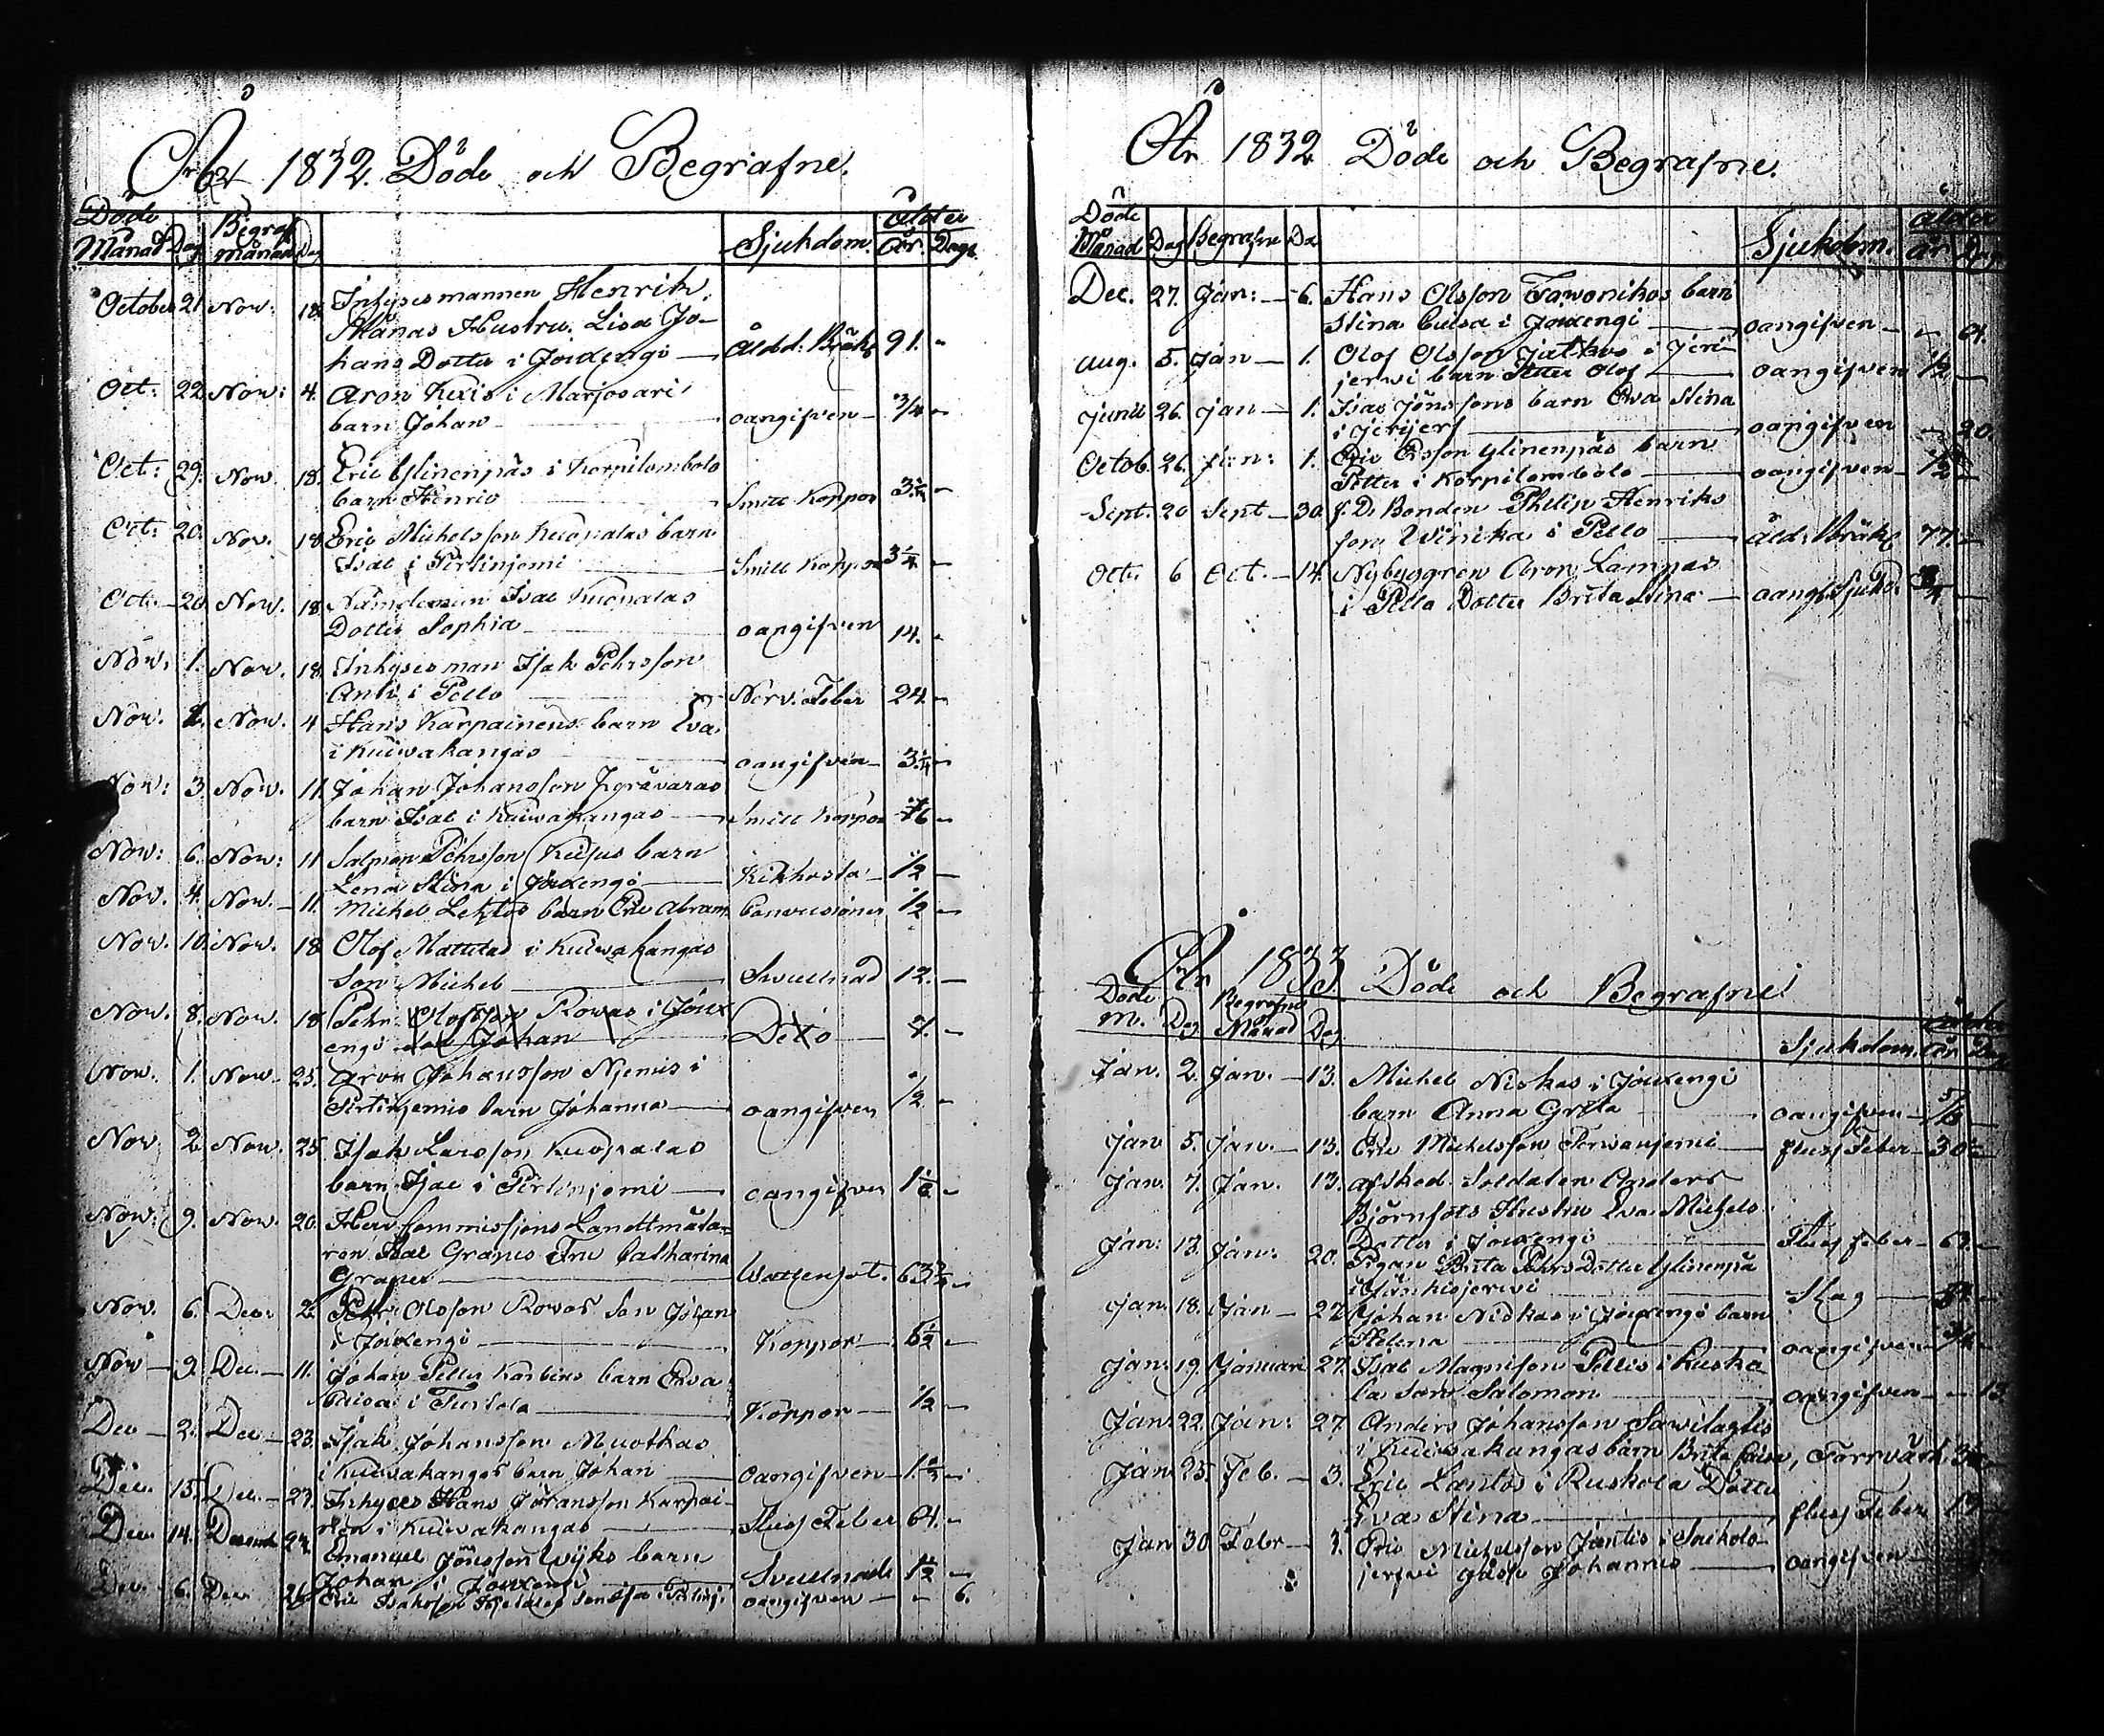 År 1832. Döde och Begrafne.
Döde Begraf Ålder
Månad Dag månad Dag Sjukdom. År. Dagr
October 21 Nov: 18. Inhysesmannen Henrik
Hustru Lisa Jo-
hans Dotter i Jouxengi Ålderd: Bräkl 91. -
Oct: 22 Nov: 4. Aron Kexis i Marjosari
barn Johan oangifven 3/4 -
Oct: 29. Nov. 18. Eric Ylinenpäs i Korpilombolo
barn Henric Smitt Koppor
Oct: 20. Nov. 18 Eric Michelsson Kuoppalas barn
Isac i Pirtinjemi Smitt Koppor
Oct. 20 Nov. 18 Nämdeman Isac Kuoppalas
Dotter Sophia oangifven 14. -
Nov. 1. Nov. 18 Inhysesman Isak Pehrsson
Anti i Pello Nerv. Feber 24. -
Nov. Nov. 4 Hans Karpainens barn Eva
i Kuivakangas oangifven 3 1/4 -
Nov: 3. Nov. 11. Johan Johansson
barn Isac i Kuivakangas Smitt Koppor
Nov: 6. Nov: 11 Salmon Pehrsson barn
Lena Stina i Jouxengi Kikhosta 1/2 -
Nov. 4. Nov. 11. Michel Lehtos barn Eric Abram Convulsioner 1/2 -
Nov. 10. Nov. 18 Olof Mattilas i Kuivakangas
Son Michel Svullnad 12. -
Nov. 8. Nov. 18 Pehr Olofsson Rovas i Joux
engi Johan Dito
Nov. 1. Nov. 25. Aron Johansson Njemis i
Pirtinjemis barn Johanna oangifven 1/2 -
Nov 2 Nov. 25. Isak Larsson Kuoppalas
barn Isac i Pirtinjemi oangifven
Nov: 9. Nov. 20. Herr Commissions Landtmäta-
ren Isac Granes Fru Catharina
Grape Wattensot. 63
Nov. 6. Dec: 2. Petr. Olsson Rovas Son Johan
i Jouxengi Koppor
Nov 9. Dec. 11. Johan Petter barn Eva
Caisa i Koppor 1/2 -
Dec 2. Dec 23. Isak Johansson Muotkas
i Kuivakangas barn Johan oangifven
Dec. 15. Dec. 23. Inhyses Hans Göransson Karpai-
nen i Kuivakangas Fluss Feber 64. -
Dec 14. Decemb Emanuel Jönsson Wijks barn
Johan i Jouxengi Svullnad
Dec. 6. Dec. 26 Eric Isaksson oangifven - 6.
År 1832 Döde och Begrafne.
Döde Ålder
Månad Dag Begrafne Da Sjukdom. år Dag
Dec. 27. Jan: 6. Hans Olsson barn
Stina Caisa i Jouxengi oangifven -
Aug. 5. Jan 1. Olof Olsson i Jeri
jerwi barn Petter Olof oangifven 1/2 -
Junii 26. Jan 1. Isac Jönssons barn Eva Stina
i Jerijerf oangifven - 20.
Octob. 26. Jan: 1. Eric Ersson Ylinenpäs barn
Petter i Korpilombolo oangifven
Sept. 20 Sept 30. f. D. Bonden Philip Henriks
son Winika i Pello Åld: Bräkl 77. -
Oct. 6 Oct. 14. Nybyggren Aron Lampas
i Pello Dotter Brita Stina oang. Sjukd.
År 1833. Döde och Begrafne
Döde Begrafne Ålder
M. Dag Månad Dag Sjukdom. År Dag
Jan. 2. Jan. 13. Michel Niskas i Jouxengi
barn Anna Greta oangifven
Jan 5. Jan. 13. Eric Michelsson fluss Feber 30
Jan. 7. Jan. 13. afsked. Soldaten Anders
Björnfots Hustru Eva Michels
Dotter i Jouxengi Fluss feber
Jan: 13. Jan: 20. Pigan Brita Pehrs Dotter Ylinenpä
Slag
Jan. 18. Jan 27. Johan Niskas i Jouxengi barn
Helena oangifven 3/4
Jan: 19. Januari 27. Isac Magnisson Pellis i Rusko
la Son Salomon oangifven - 13.
Jan. 22. Jan: 27. Anders Johansson Sawilahtis
i Kuivakangas barn Brita Caisa, Torrvärk
Jan 25. Feb. 3. Eric Lantos i Ruskola Dotter
Eva Stina fluss Feber
Jan 30 Febr 3. Eric Michelsson
Johannes oangifven